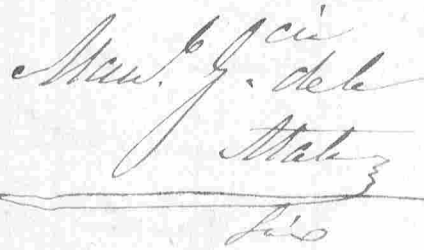 Man.l G.cia de la
Mata